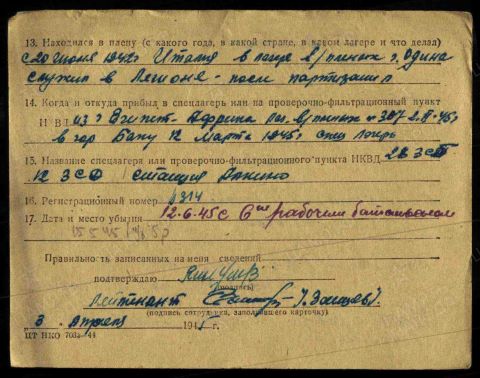 13. Находился в плену (с какого года, в какой стране, в каком лагере и что делал)
с 20 июня 1942г Италия в лагере в/пленых г. Одина
служил в Легионе - после партизанил
14. Когда и откуда прибыл в спецлагерь или на проверочно-фильтрационный пункт
НКВД из Египет - Африка лаг. в/пленых № 307 2.II-45г
в гор Баку 12 Марта 1945г. спец лагерь
15. Название спецлагеря или проверочно-фильтрационного пункта НКВД 28 ЗСП
12 ЗСД станция Аляты
16. Регистрационный номер 4314
17. Дата и место убытия 12.6.45 с 6м рабочим батальоном
15 5 45
Правильность записанных на меня сведений
подтверждаю
(подпись)
Лейтенант
(подпись сотрудника, заполнявшего карточку)
3. Апреля 1945г.
ЦТ НКО 703а-44